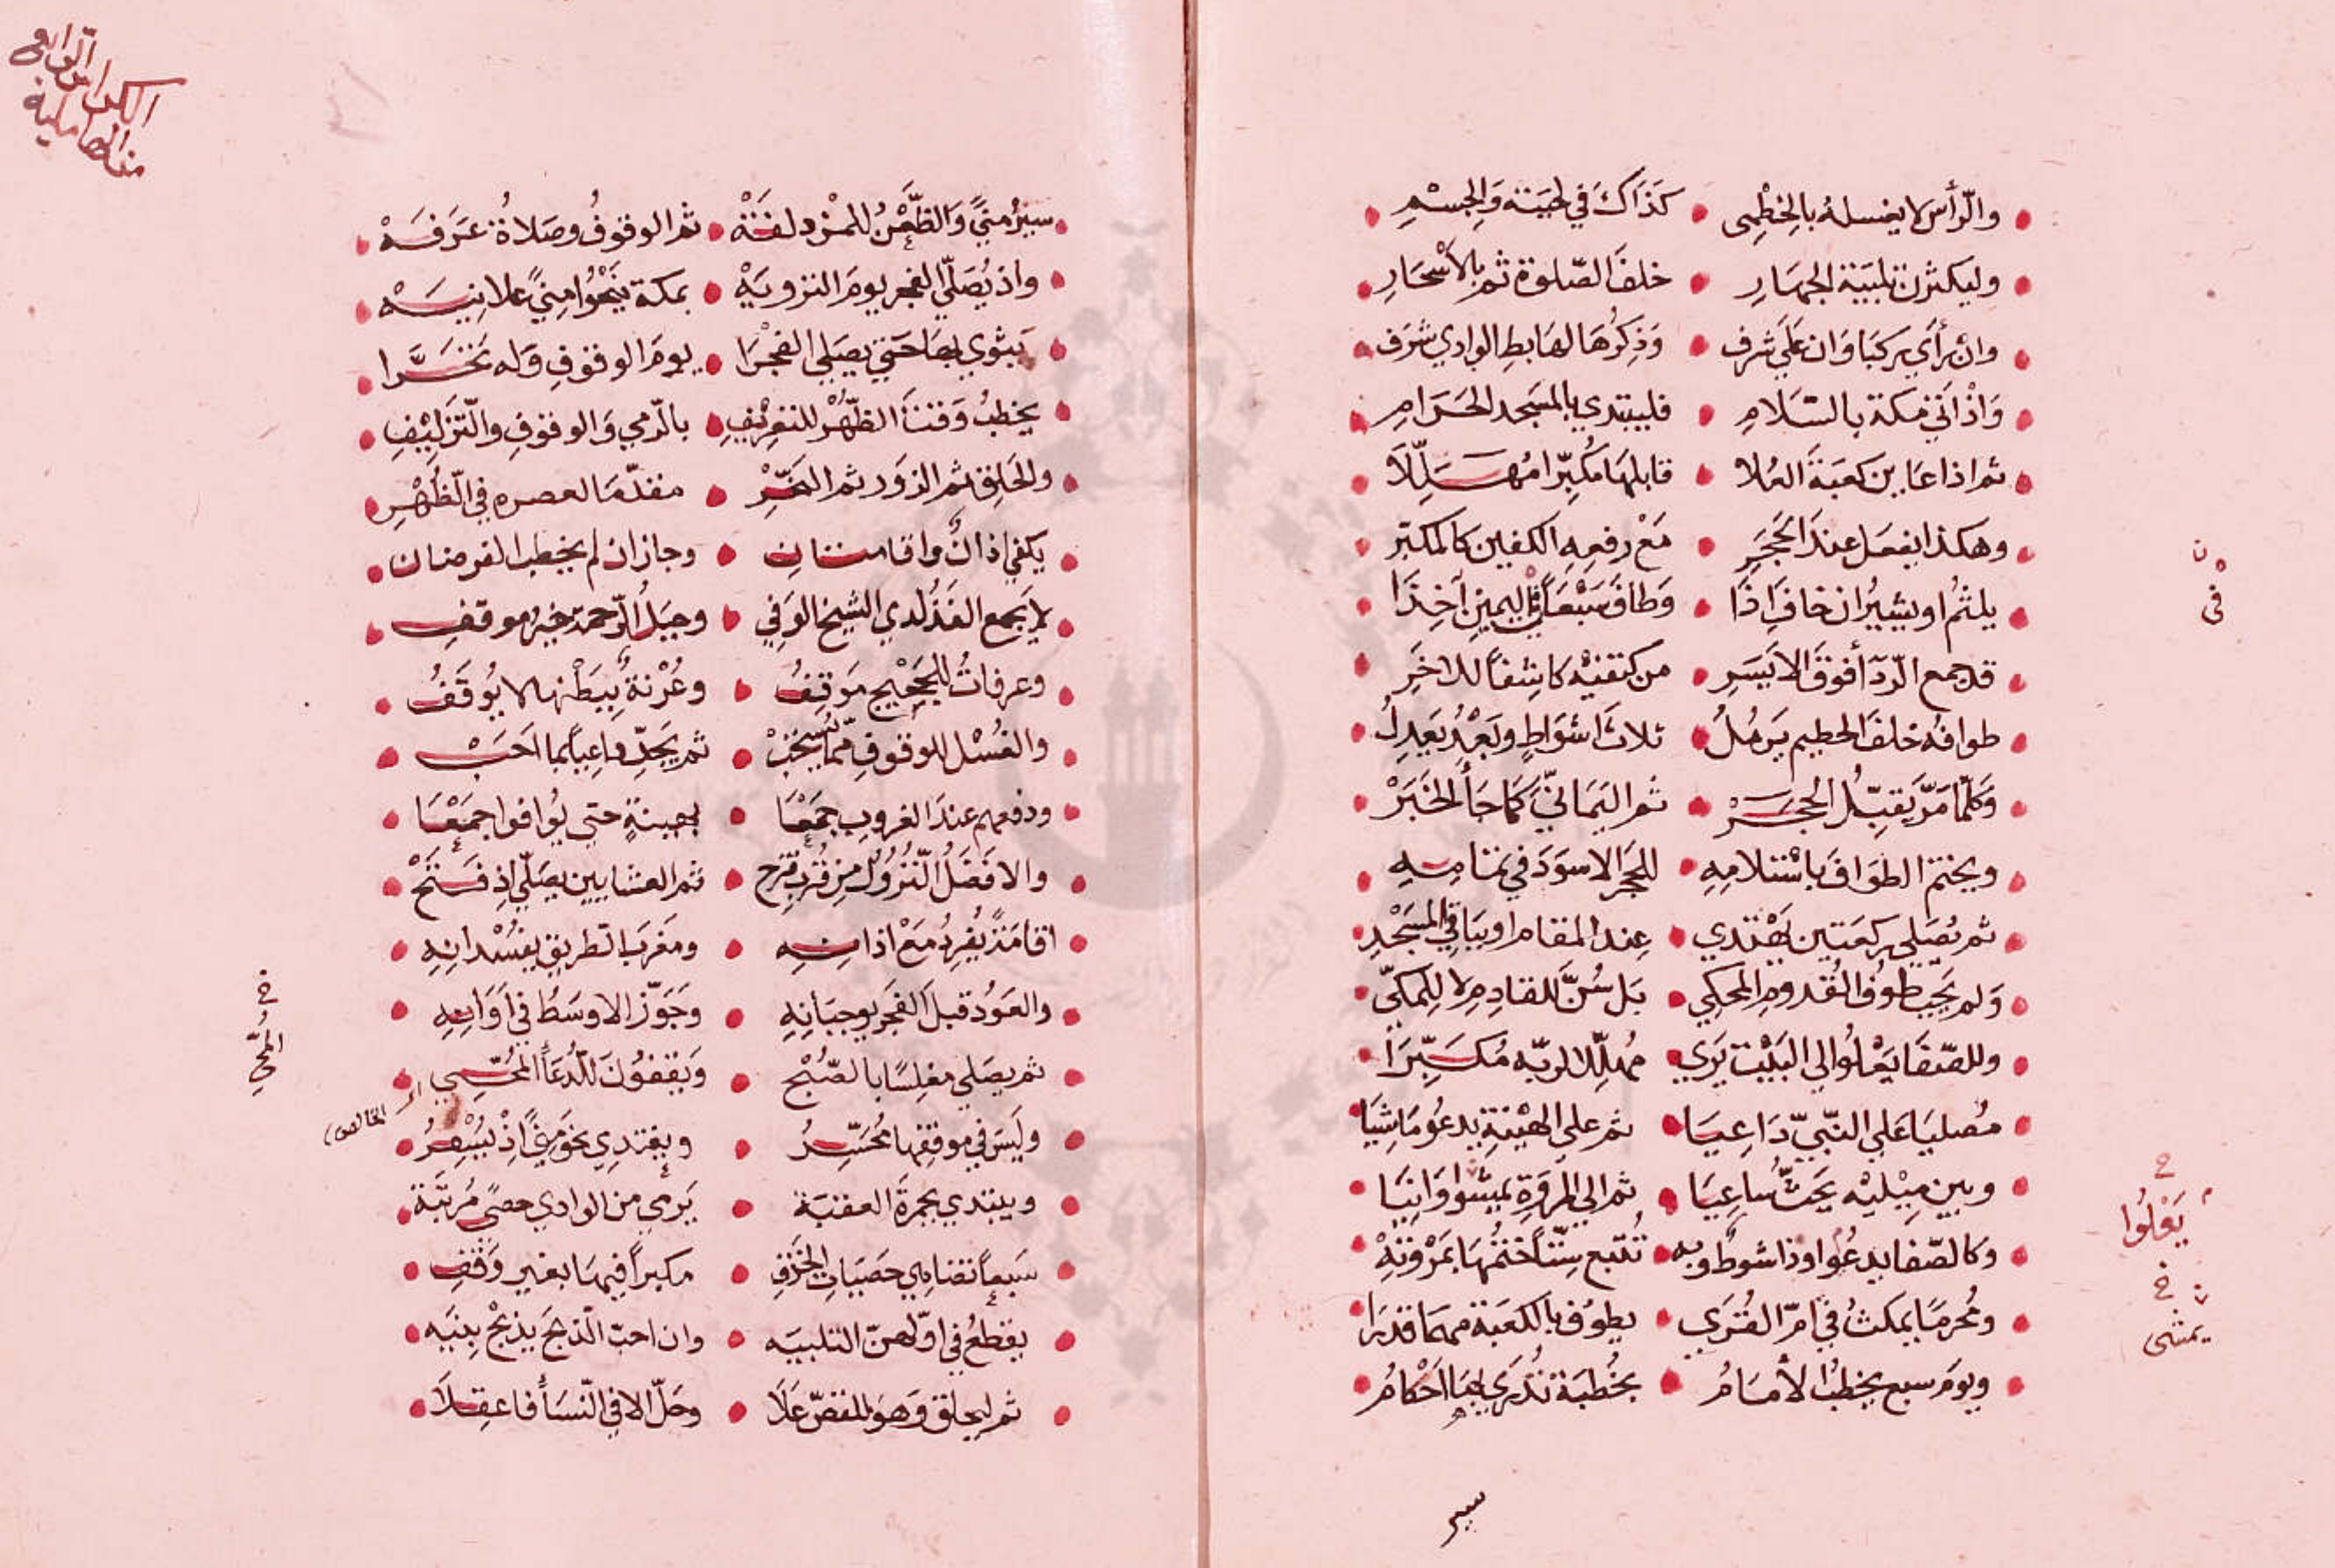 والرّأس لا يغسله بالخِطْمِى • كَذَاكَ في لحيَته وَالجِسْمِ
وليكثرن تلبيَة الجهَارِ • خلفَ الصّلوة ثم بالأسْحَارِ
وان رأي ركبَا وَان عَلَي شرف • وَذِكرُهَا لهَابطِ الوادي شَرَف
وَاذْ اتي مكة بالسّلامِ • فليبتدي بالمسَجد الحَرَامِ
ثم اذا عَاين كعبَةَ العُلا • قابلهَا مكُبِّرا مُهَلِّلَا
وهكذا يفعَل عندَ الحَجَرِ • مَعْ رفعِهِ الكفين كالمكبّرِ
يلثمُ او يشيرُ ان خاف اِذَا • وَطافَ سَبْعَاً في اليمينِ آخِذَا
قد جمع الرّدَآ أفوقَ الايَسَرِ • من كتفيْه كاشِفاً للاخَرِ
طوافهُ خلفَ الحطيم يَرمُلُ • ثلاثَ اشوَاطٍ وبَعْدُ يَعدِلُ
وَكلّمَا مَرّ يقبِّلُ الحجَرْ • ثم اليَمَانيَّ كَمَا جَأَ الخَبَرْ
ويختم الطوَافَ باسْتلامِهِ • للحَجَر الاسوَدَ في تمَامِهِ
ثم يُصَلي ركعَتين يَهْتدي • عِند المقام او بِبَاقي المَسَجْدِ
وَلم يَجِب طوفُ القُدوم المحكي • بَل سُنَّ للقادِمِ لا لِلمكيّ
وللصّفَا يَعْلوُا الي البَيْت يَرَي • مُهلِّلا لربّه مُكَبِّرَا
مُصليَا عَلي النّبيّ دَاعِيَا • ثم علي الهيْنَةِ يدعُو مَاشِيَا
وبين مِيْليْه يَحَثُّ سَاعِيَا • ثم الي المرْوَةِ يمشوا وَانِيَا
وكالصّفا يدعُوا وذا شوطٌ وبه • تُتبع سِتّاً ختمُهَا بمَرْوَتِهْ
ومُحرِمًا يمكثُ في امّ القُرَي • يطوُف بالكعبَة مهمَا قدَرَا
ويومَ سبع يخطبُ الأمَامُ • بخُطبَة تُدْرَي بهَا احْكامُ
ن في
خ يَعْلوُا
خ يمشى
سير
الكراس الرابع من الهاملية
سيرُ منيً وَالظّعْنُ للمزدلفَهْ • ثم الوقوفُ وصَلاةُ عَرَفَهْ
واذ يُصَلّي الفجر يومَ الترويَهْ • بمكة يَنْحُوا مِنيً علانيَهْ
يَثوي بهَا حَتي يصَلي الفجْرَا • يومَ الوقوفِ وَله تحَرَّا
يخطبُ وَقتَ الظّهْر للتعرِيْفِ • بالرّمي وَالوقوفِ والتّزْلِيْفِ
والحَلِق ثم الزوَر ثم النَحْرِ • مقدّمَا لعصره في الظُهْرِ
يكفي اذانٌ واقامتانِ • وجاز ان لم يخطب الفرضان
لا يَجمع الفَذُ لدي الشيخ الوَفي • وجبَلُ الرّحمة خيرُ موقفِ
وعرفاتُ للحَجيْج مَوقِفُ • وعُرْنةٌ بِبَطْنها لا يُوقَفُ
والغُسْل للوقوفِ ممّا يُسْتحَبْ • ثم يَجَدِّ داعِياً بما احَبْ
ودفعهم عندَ الغروبِ جمَعْا • بهينةٍ حتي يُوافوا جمَعْا
والافضَلُ النّزوُلُ مِن قُربِ قُزَحْ • ثم العشايين يصَلّي اِذ فسَحْ
اقامَةً يُفرِدُ مَعْ اذانِهِ • ومغرَب الطّريق يفسُد انِهِ
والعَودُ قبلَ الفجَرِ يوجبَانِهِ • وَجَوّز الاوسَطُ في أوَانِهِ
ثم يصَلي مغلِسًا بالصّبُحْ • وَيقفوُنَ للدُّعَأ الملحِّ
وليَسَ في موقفِها مُحَسِّرُ • ويغتدي نحوَ مِنيً اِذْ يُسْفِرُ
ويبتدي بجمرَةِ العقبَة • يَرمي من الوادي حصيً مُرتبَّة
سَبعاً تضاهي حَصَيَاتِ الخَزَفِ • مكبراً فيهَا بغير وَقْفِ
يقطعُ في اوّلهنّ التلبيَه • وان احبّ الذّبحَ يذبَحْ بِنيَه
ثم ليحلق وَهوَ للمقصّ عَلَا • وحَلّ الا في النّسَأ فاعقِلَا
خ المُلحِّ